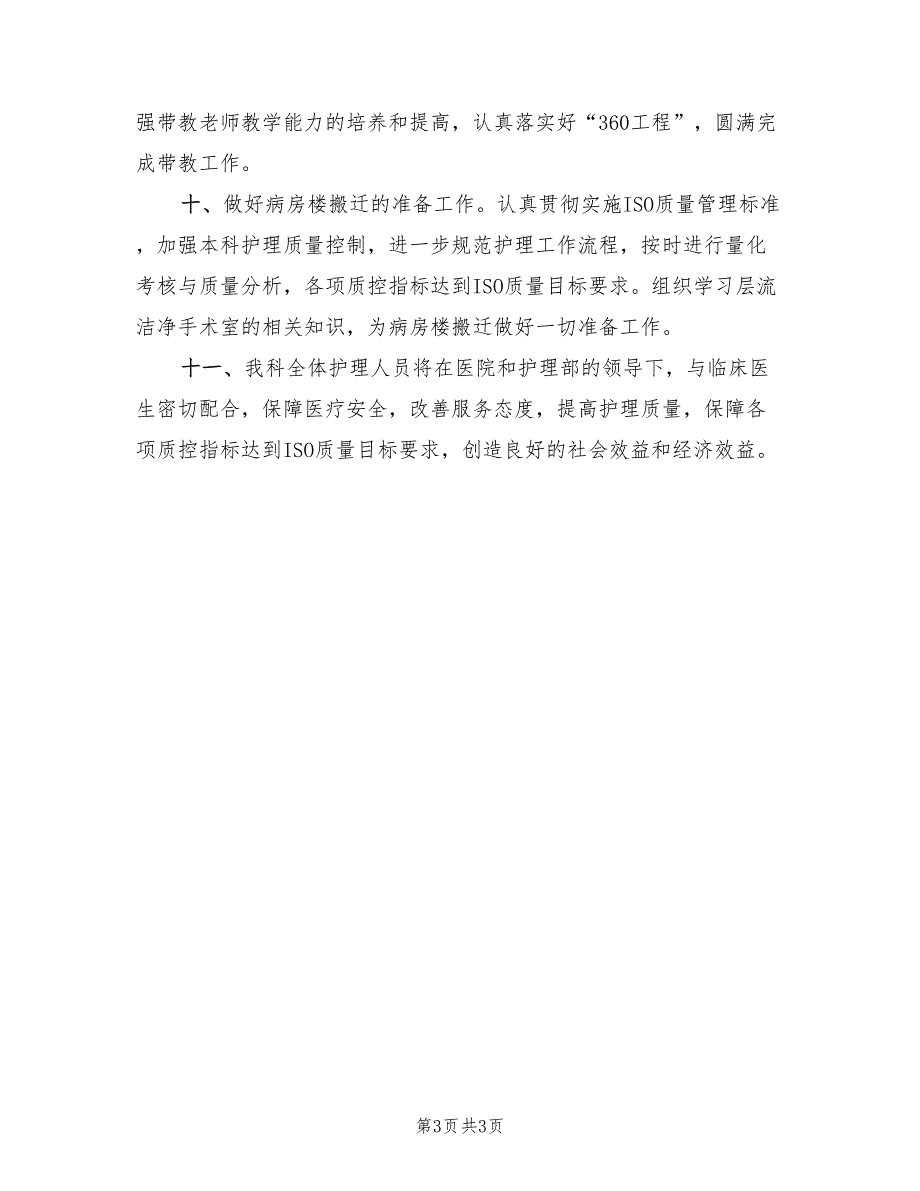 强带教老师教学能力的培养和提高，认真落实好“360工程”，圆满完
成带教工作。
十、做好病房楼搬迁的准备工作。认真贯彻实施ISO质量管理标准
，加强本科护理质量控制，进一步规范护理工作流程，按时进行量化
考核与质量分析，各项质控指标达到ISO质量目标要求。组织学习层流
洁净手术室的相关知识，为病房楼搬迁做好一切准备工作。
十一、我科全体护理人员将在医院和护理部的领导下，与临床医
生密切配合，保障医疗安全，改善服务态度，提高护理质量，保障各
项质控指标达到ISO质量目标要求，创造良好的社会效益和经济效益。
第3页共3页